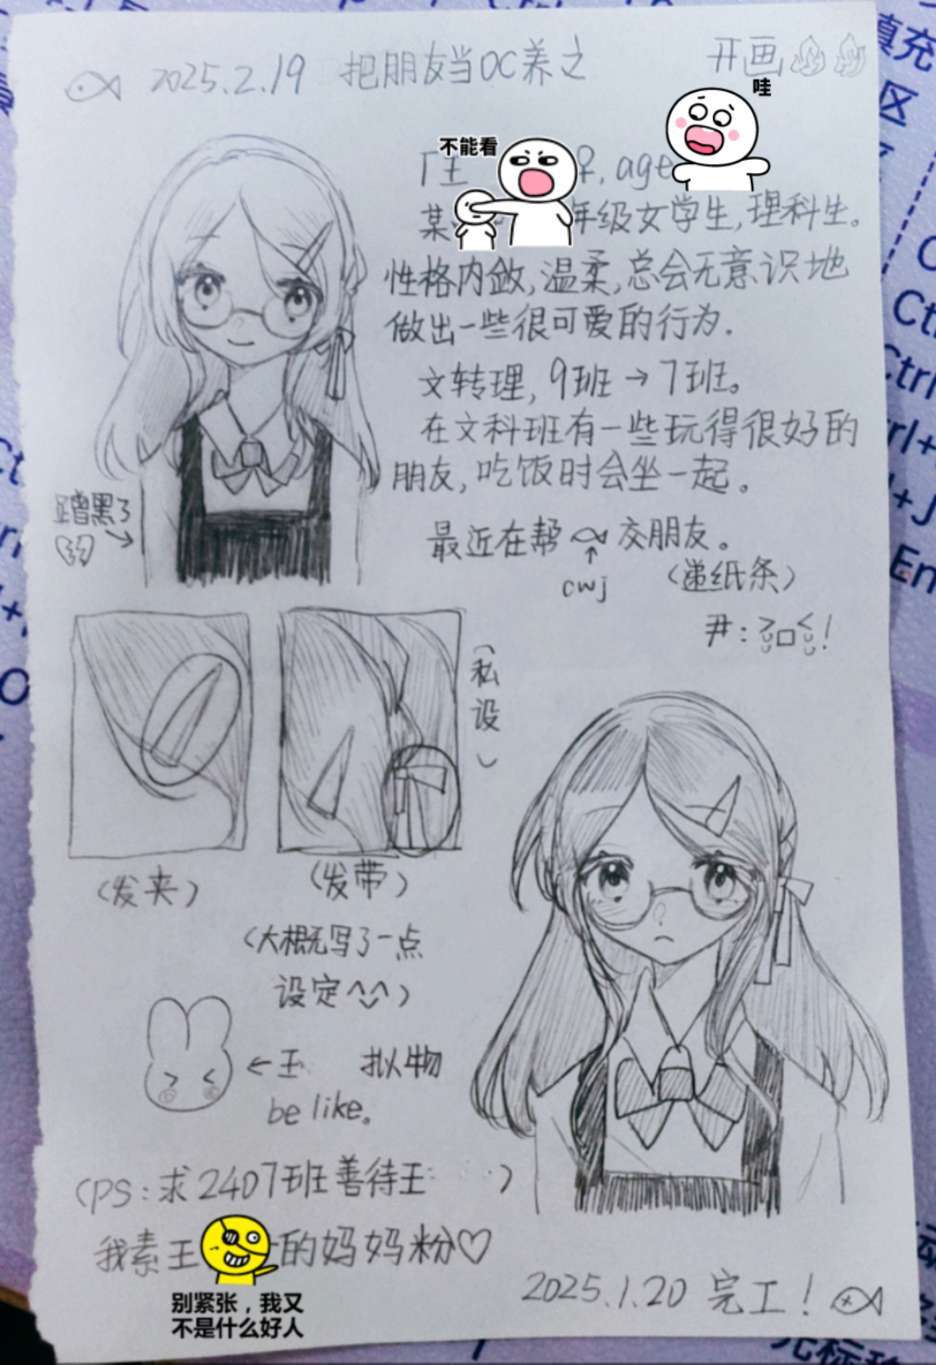 2025.2.19 把朋友当OC养之
开画
哇
不能看
「王 ♀, age
某 年级女学生,理科生。
性格内敛,温柔,总会无意识地
做出一些很可爱的行为.
文转理, 9班→7班。
在文科班有一些玩得很好的
朋友,吃饭时会坐一起。
黑了
最近在帮 交朋友。
↑
cwj
(递纸条)
尹:
(私设)
(发夹)
(发带)
(大概写了一点
设定^^)
←王 拟物
be like。
(PS:求2407班善待王 )
我素王 的妈妈粉♡
别紧张,我又
不是什么好人
2025.1.20 完工!
填充
区
Ctrl
Ctrl+
En